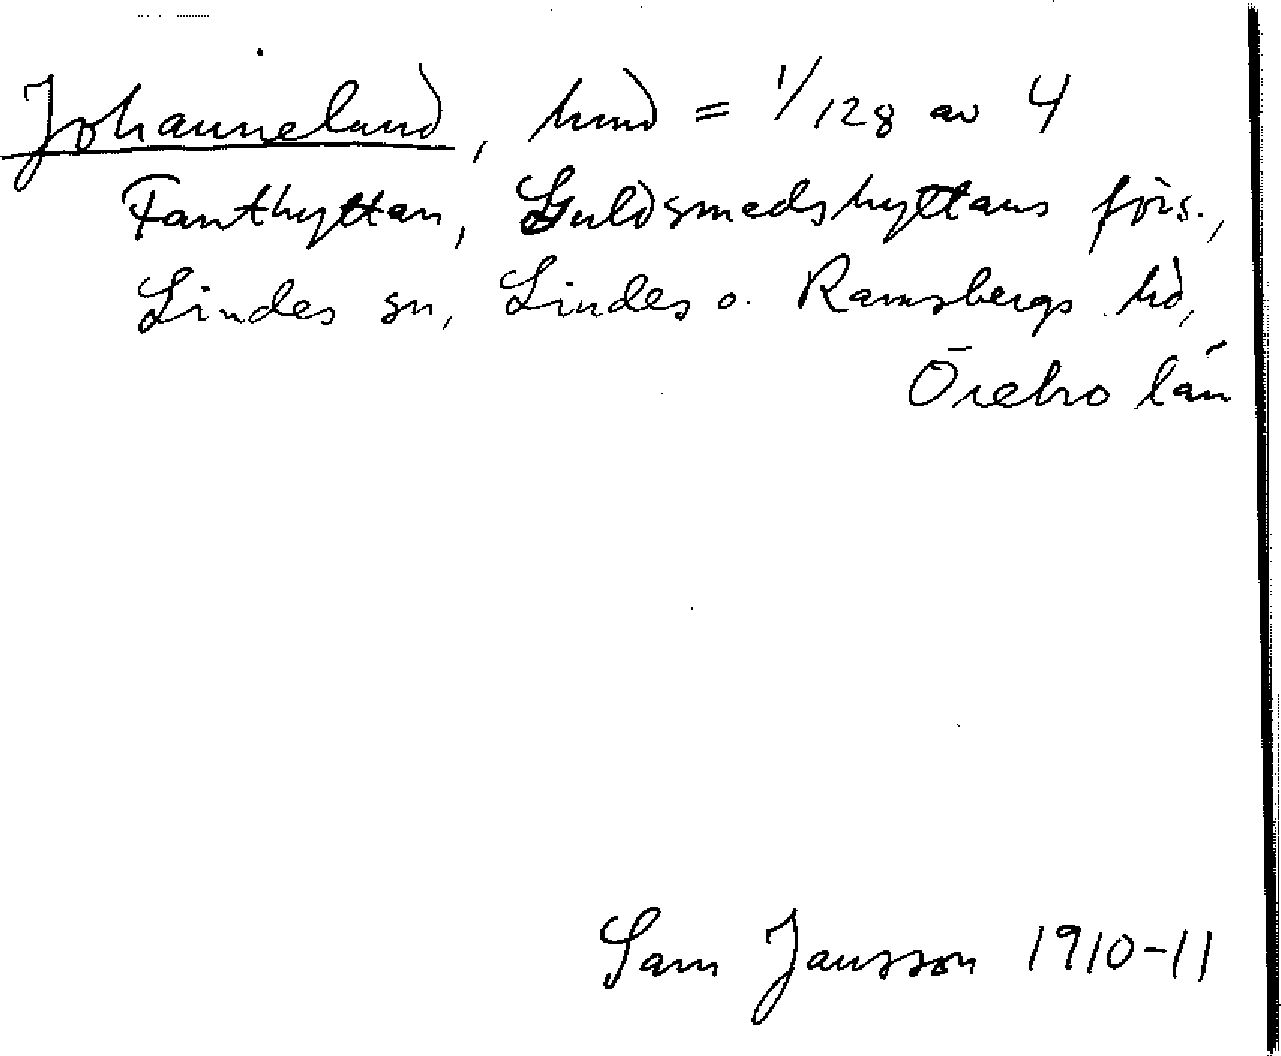 Johannelund, hmd = 1/128 av 4
Fanthyttan, Guldsmedshyttans förs.,
Lindes sn, Lindes o. Ramsbergs hd,
Örebro län
Sam Jansson 1910-11